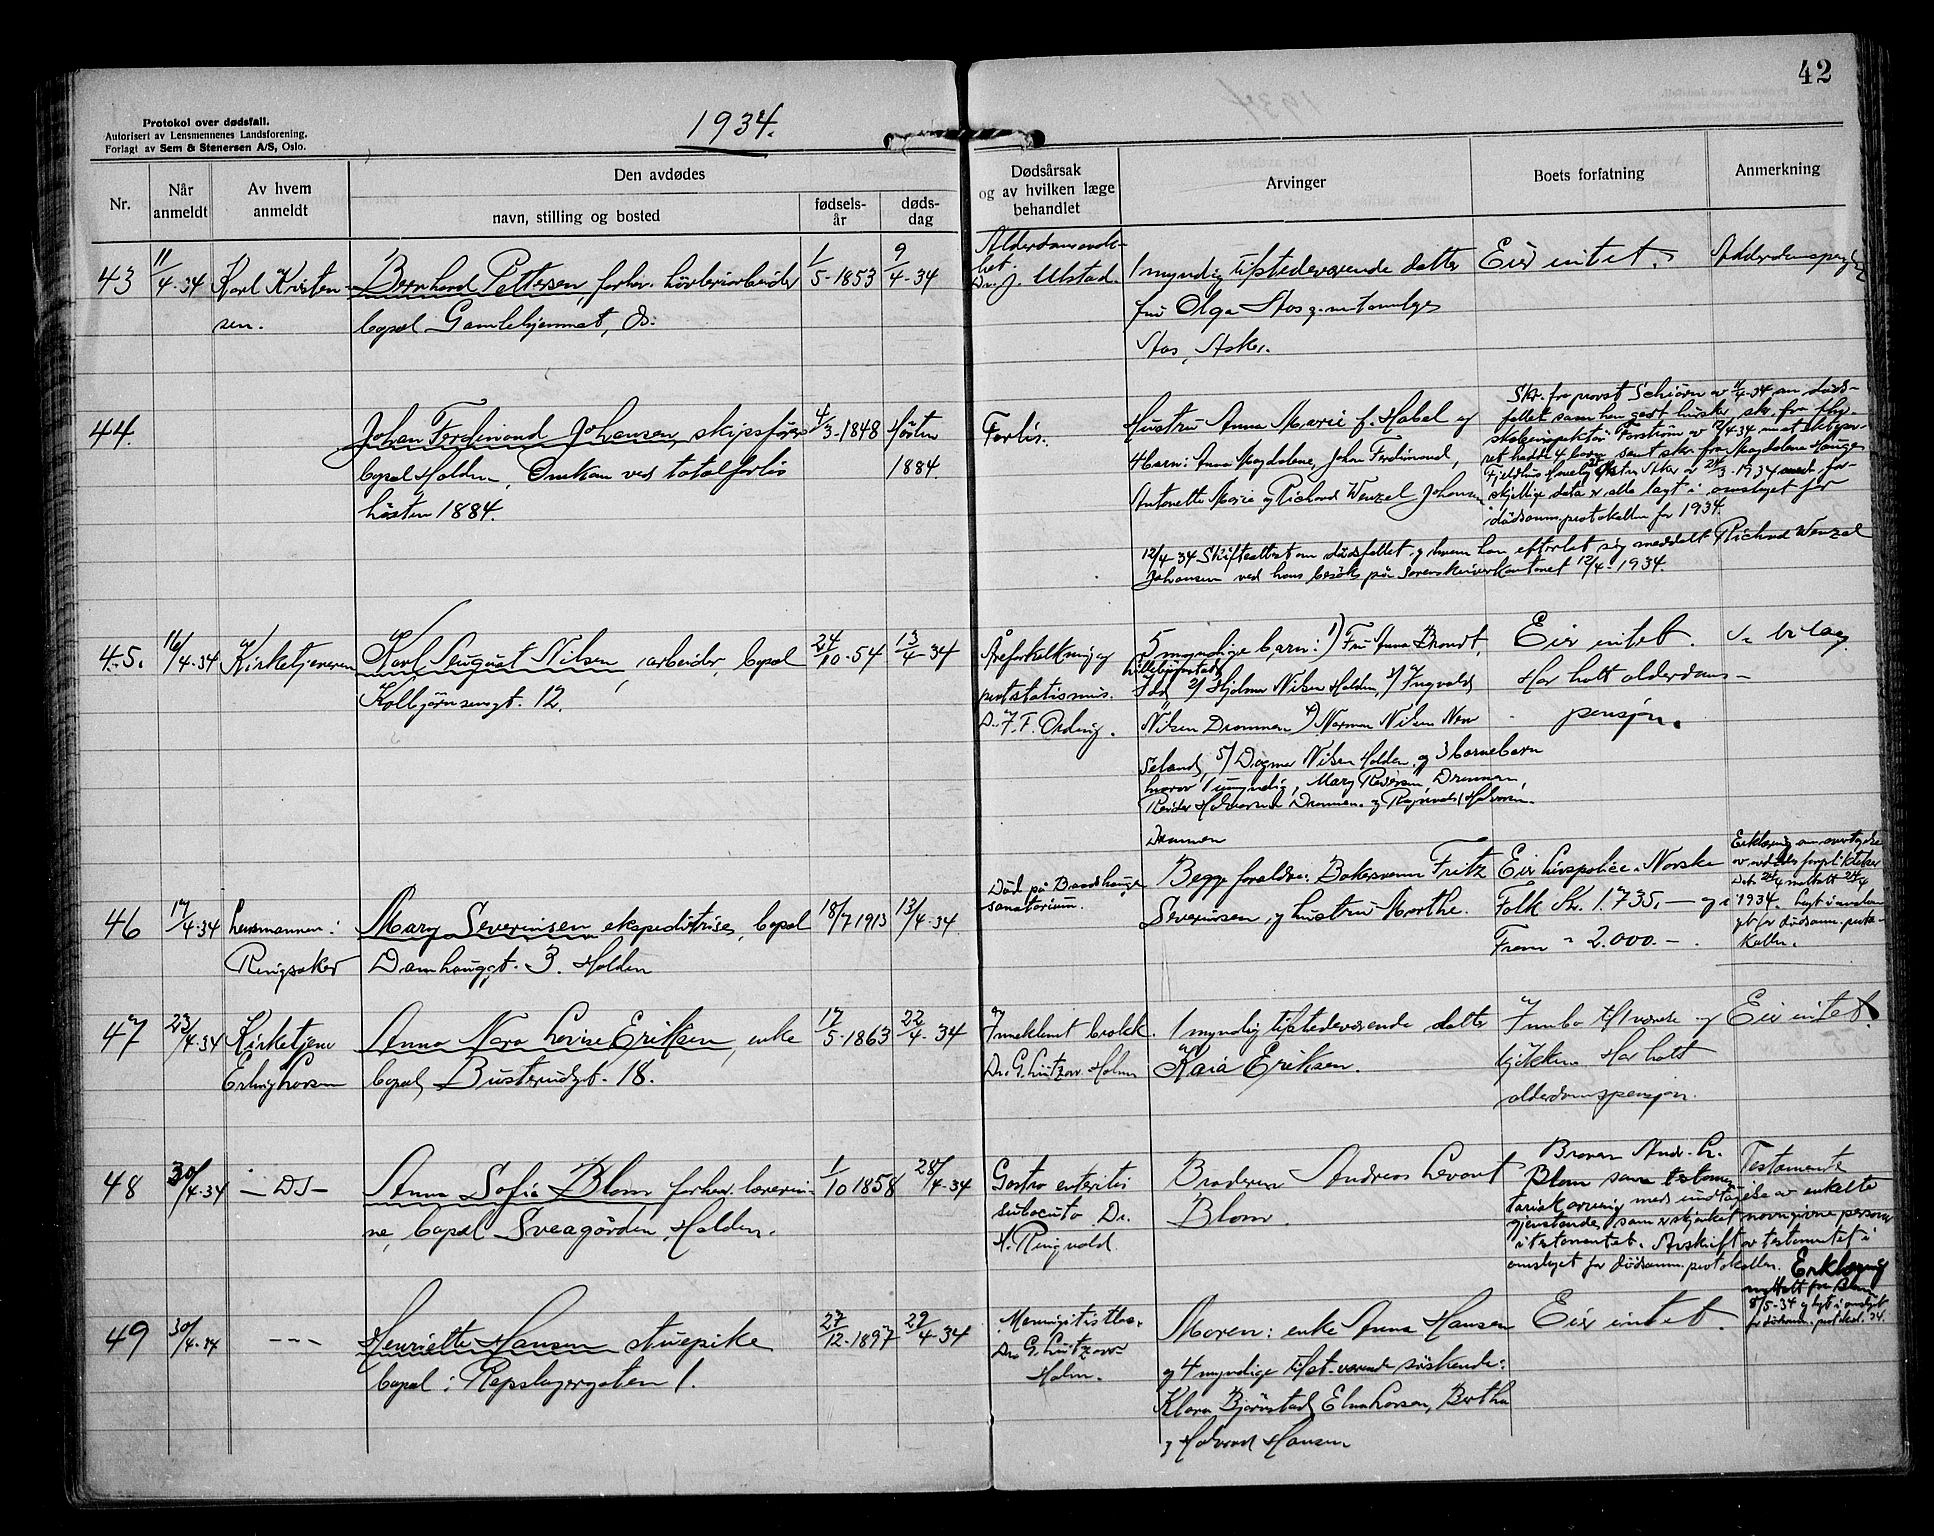 42
Protokol over dødsfall.
Autorisert av Lensmennenes Landsforening.
Forlagt av Sem & Stenersen A/S, Oslo.
1934.
Nr.
Når anmeldt
Av hvem anmeldt
Den avdødes
navn, stilling og bosted
fødsels-år
døds-dag
Dødsårsak og av hvilken læge behandlet
Arvinger
Boets forfatning
Anmerkning
43
11/4-34
Karl Kristen-
sen.
Bernhard Pettersen, forhv. høvleriarbeider
bopæl Gamlehjemmet, ds.
1/5-1853
9/4-34
Dr. J. Ulstad.
1 myndig tilstedeværende datter
fru Olga Aos g.m.
Aos, Asker.
Eier intet.
44.
Johan Ferdinand Johansen, skipsfører
bopæl Halden, Omkom ved totalforlis
høsten 1884.
4/3-1848
Høsten
1884.
Forlis.
Hustru Anna Marie f. Habel og
4 barn: Anna Magdalene, Johan Ferdinand,
Antonette Marie og Richard Wenzel Johansen
Skr. fra provst Schiörn av 11/4-34 om døds-
fallet som han godt husker, skr. fra
av 12/4-34
ret hadde 4 barn samt skr. fra Magdalene Hauge
av 24/3-1934 med for-
skjellige data er alle lagt i omslaget for
dødsanm.protokollen for 1934.
12/4-34 Skifteattest om dødsfallet og hvem han efterlot sig meddelt Richard Wenzel
Johansen ved hans besøk på sorenskriverkontoret 12/4-1934.
45.
16/4-34
Kirketjeneren
Karl August Nilsen, arbeider, bopæl
Kolbjørnsensgt. 12.
24/10-54
13/4-34
Åreforkalkning og
prostatismus.
Dr. F. F. Ording.
5 myndige barn: 1) Fru Anna Brandt,
Idd 2/ Hjalmar Nilsen Halden, 3/ Ingvald
Nilsen Drammen 4) Norman Nilsen New
Seland, 5/ Dagmar Nilsen Halden og 3 barnebarn
hvorav 1 umyndig, Mary Pedersen, Drammen,
Reidar Halvorsen Drammen og Ragnvald Halvorsen
Drammen
Eier intet.
Har hatt alderdoms-
pensjon.
Se bilag.
46
17/4-34
Lensmannen i
Ringsaker
Mary Severinsen ekspeditrise, bopæl
Damhauggt. 3. Halden
18/7 1913
13/4-34
Død på
sanatorium.
Begge foreldre: Bakersvenn Fritz
Severinsen og hustru Marthe.
Eier livspolice i Norske
Folk Kr. 1.735,- og i
Fram " 2.000.-
Erklæring om overtagelse
av avdødes forpliktelser
1934. Lagt i omslag-
et for dødsanm. proto-
kollen.
47
23/4-34
Kirketjener
Erling Larsen
Anna Nora Lovise Eriksen, enke
bopæl, Busterudgt. 18.
17/5-1863
22/4-34
Inneklemt brokk.
Dr. G. Lützow Holm
1 myndig tilstedeværende datter
Kaia Eriksen.
Innbo til 1 værelse og
kjøkken Har hatt
alderdomspensjon.
Eier intet.
48
30/4-34
- Ds -
Anna Sofie Blom forhenv. lærerin-
ne, bopæl Sveagården, Halden.
1/10 1858
28/4-34
Gastro enteritis
subacuta Dr.
H. Ringvold.
Broderen Andreas Levart
Blom.
Broren Andr. L.
Blom som testamen-
tarisk arving med undtagelse av enkelte
gjenstander som er skjenket navngivne personer
i testamentet. Avskrift av testamentet i
omslaget for dødsanm.protokollen.
Testamente
Erklæring
mottatt fra Blom
8/5-34 og lagt i omslaget
for dødsanm. protokol. 34.
49
30/4-34
- - -
Henriette Hansen stuepike
bopæl i Repslagergaten 1.
27/12-1897
29/4-34
Dr. G. Lützow-
Holm.
Moren: enke Anna Hansen
og 4 myndige tilst.værende søskende:
Klara Bjørnstad, Elna Larsen, Bertha
og Halvard Hansen
Eier intet.